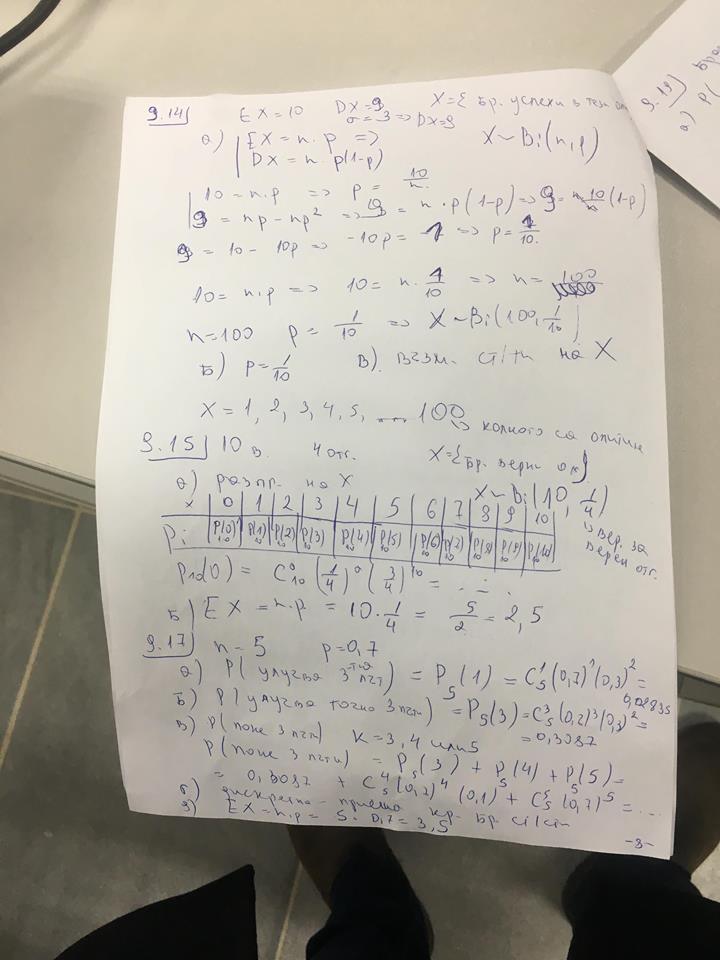 9.14 EX = 10 DX = 9 X = { бр. успехи в тези оп.
σ = 3 => DX = 9
а) EX = n.p => X ~ Bi(n,p)
DX = n.p(1-p)
10 = n.p => p = 10/n
9 = np - np² => 9 = n.p(1-p) => 9 = n 10/n (1-p)
9 = 10 - 10p => -10p = -1 => p = 1/10.
10 = n.p => 10 = n. 1/10 => n = 100
n = 100 p = 1/10 => X ~ Bi(100, 1/10)
Б) p = 1/10 В) Възм. ст/ти на X
X = 1, 2, 3, 4, 5, .... 100 -> колкото са опитите
9.15 10 в. 4 отг. X = { бр. верни от }
а) разпр. на X X ~ Bi(10, 1/4)
x | 0 | 1 | 2 | 3 | 4 | 5 | 6 | 7 | 8 | 9 | 10 -> вер. за
Pi | P10(0) | P10(1) | P10(2) | P10(3) | P10(4) | P10(5) | P10(6) | P10(7) | P10(8) | P10(9) | P10(10) верен отг.
P10(0) = C₁₀⁰ (1/4)⁰ (3/4)¹⁰ = ...
Б) EX = n.p = 10. 1/4 = 5/2 = 2,5
9.17 n = 5 p = 0,7
а) P( улучва 3-тия път) = P₅(1) = C₅¹ (0,7)¹ (0,3)² =
0,02835
Б) P( улучва точно 3 пъти) = P₅(3) = C₅³ (0,7)³ (0,3)² =
= 0,3087
в) P( поне 3 пъти) K = 3, 4 или 5
P( поне 3 пъти) = P₅(3) + P₅(4) + P₅(5) =
= 0,3087 + C₅⁴ (0,7)⁴ (0,1) + C₅⁵ (0,7)⁵ = ...
г) дискретна - приема кр. бр. ст/сти
д) EX = n.p = 5. 0,7 = 3,5
-3-
9.19
а) P(